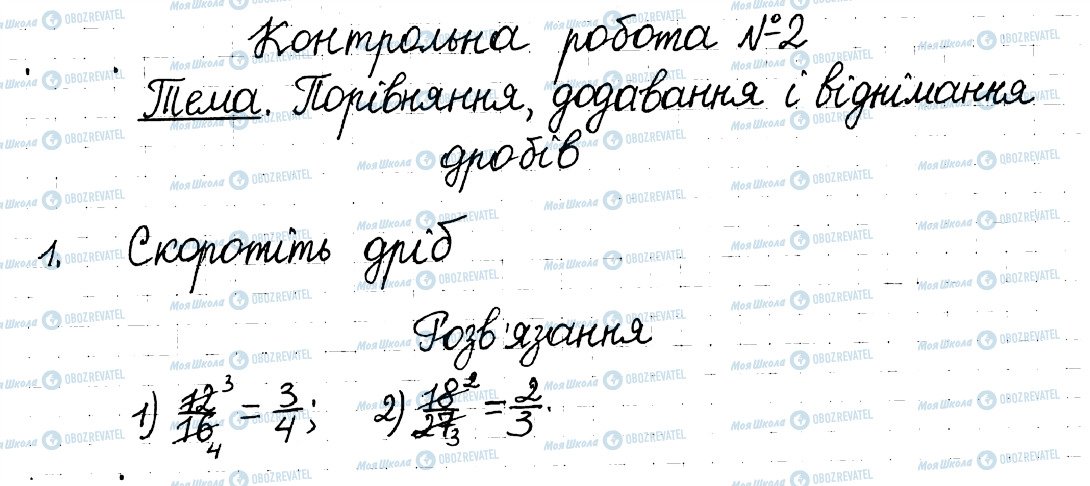 Контрольна робота №2
Тема. Порівняння, додавання і віднімання
дробів
1. Скоротіть дріб
Розв'язання
1) 12³/16₄ = 3/4; 2) 18²/27₃ = 2/3.